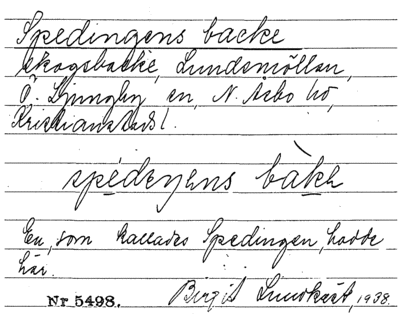 Spedingens backe
skogsbacke, Lundsmöllan,
Ö. Ljungby sn, N. Åsbo hd,
Kristianstads l.
spèdeŋens bàkə
En, som kallades Spedingen, hadde
här.
Birgit Lundkvist, 1938.
Nr 5498.